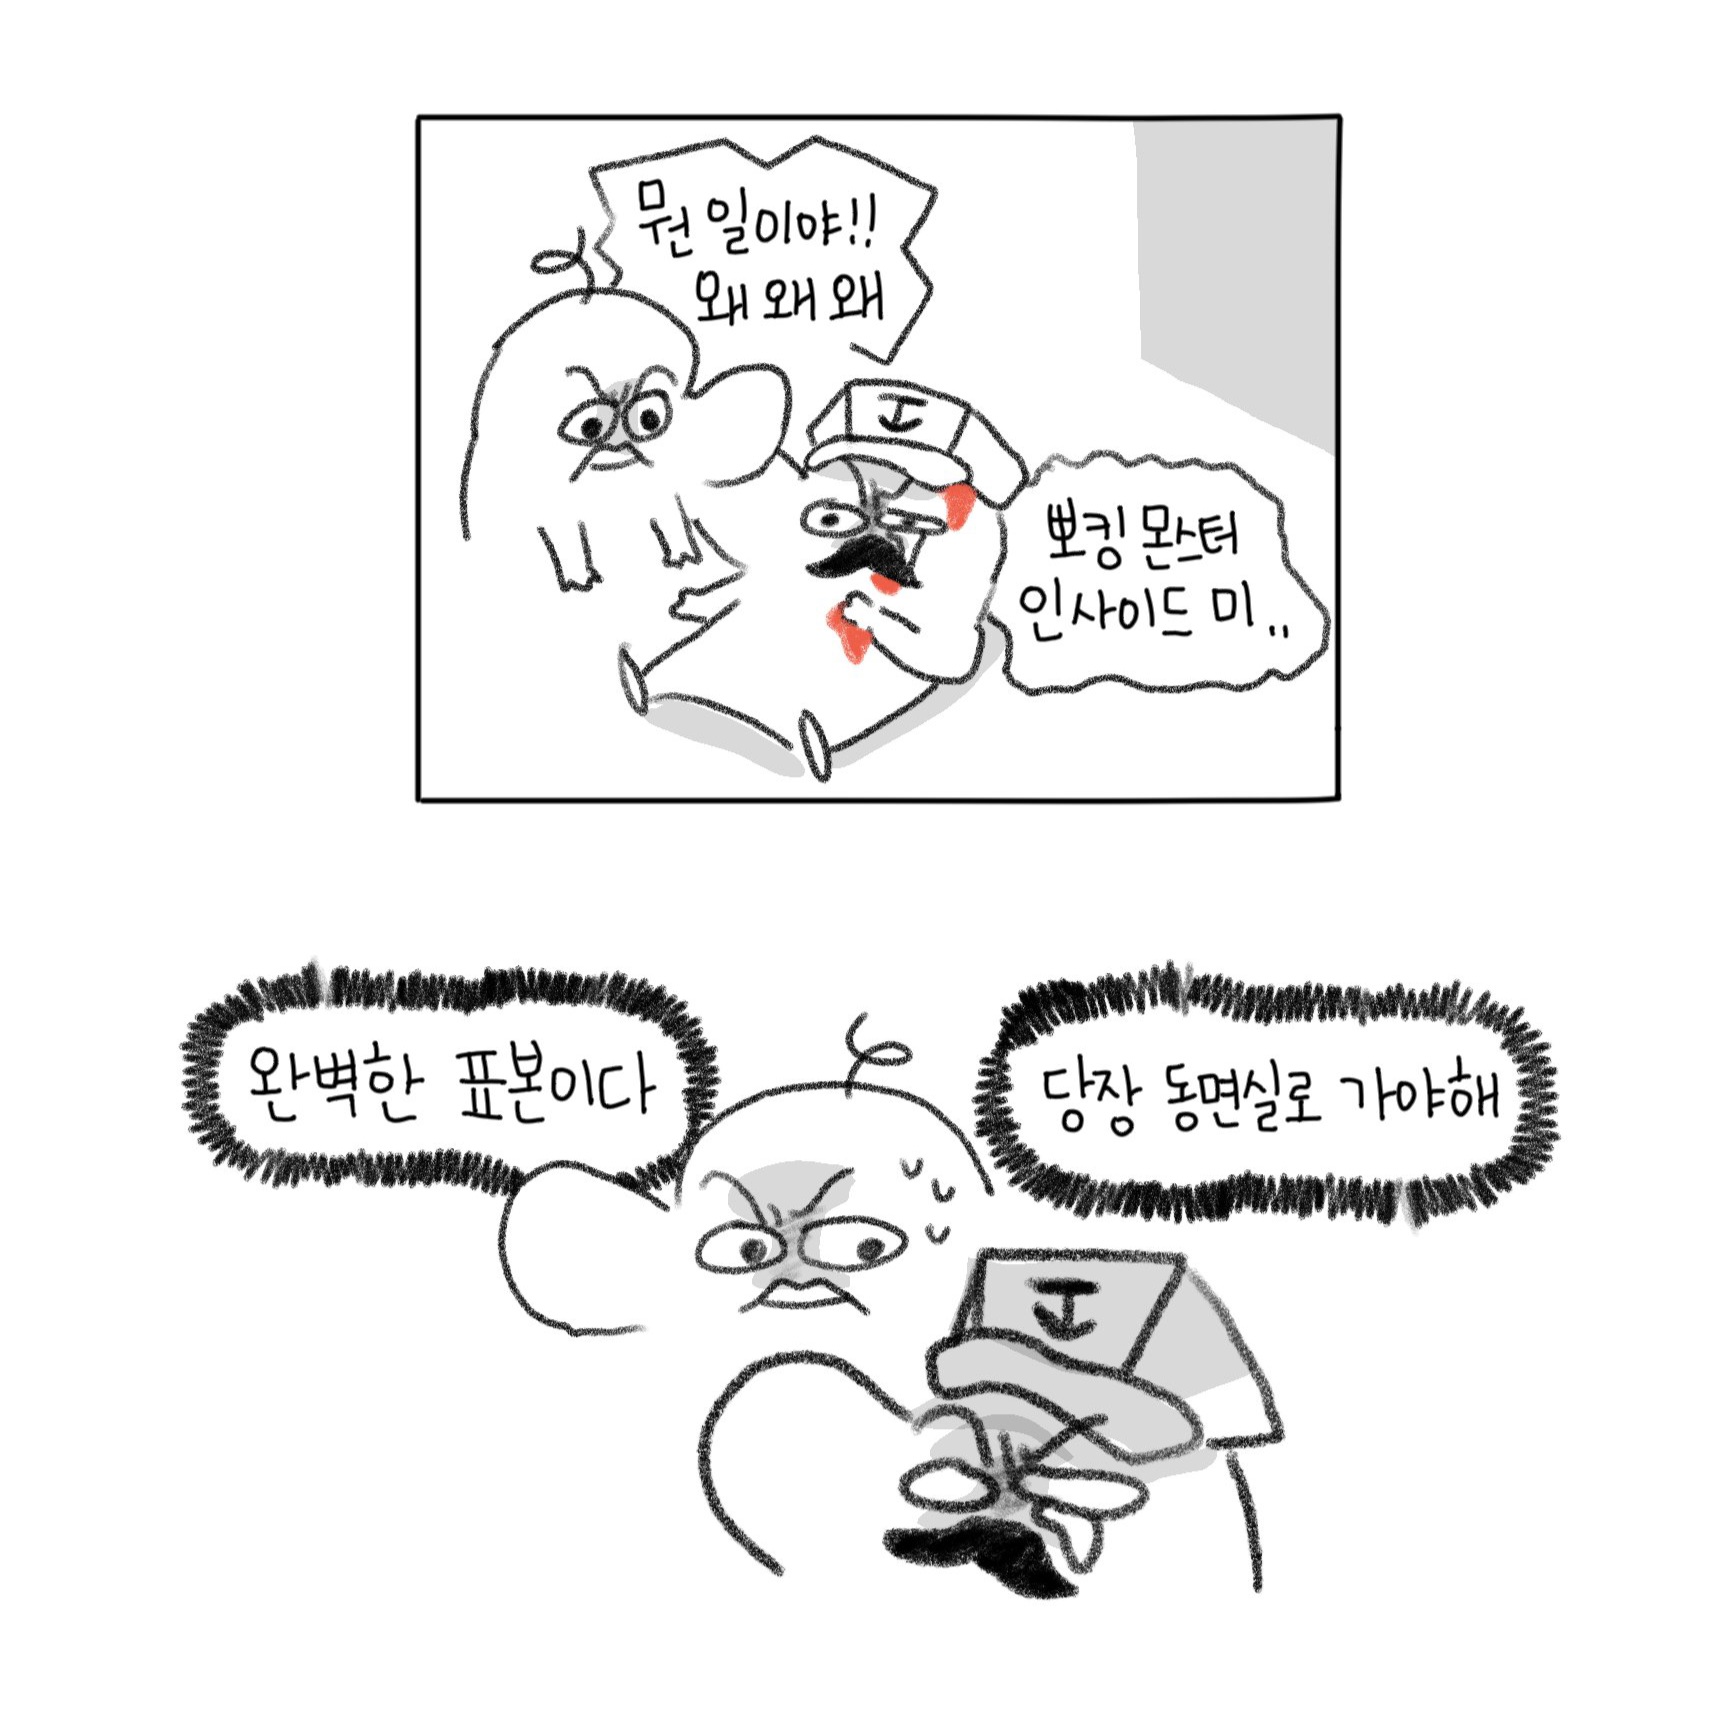 뭔 일이야!!
왜 왜 왜
뽀킹 몬스터
인사이드 미..
완벽한 표본이다
당장 동면실로 가야해